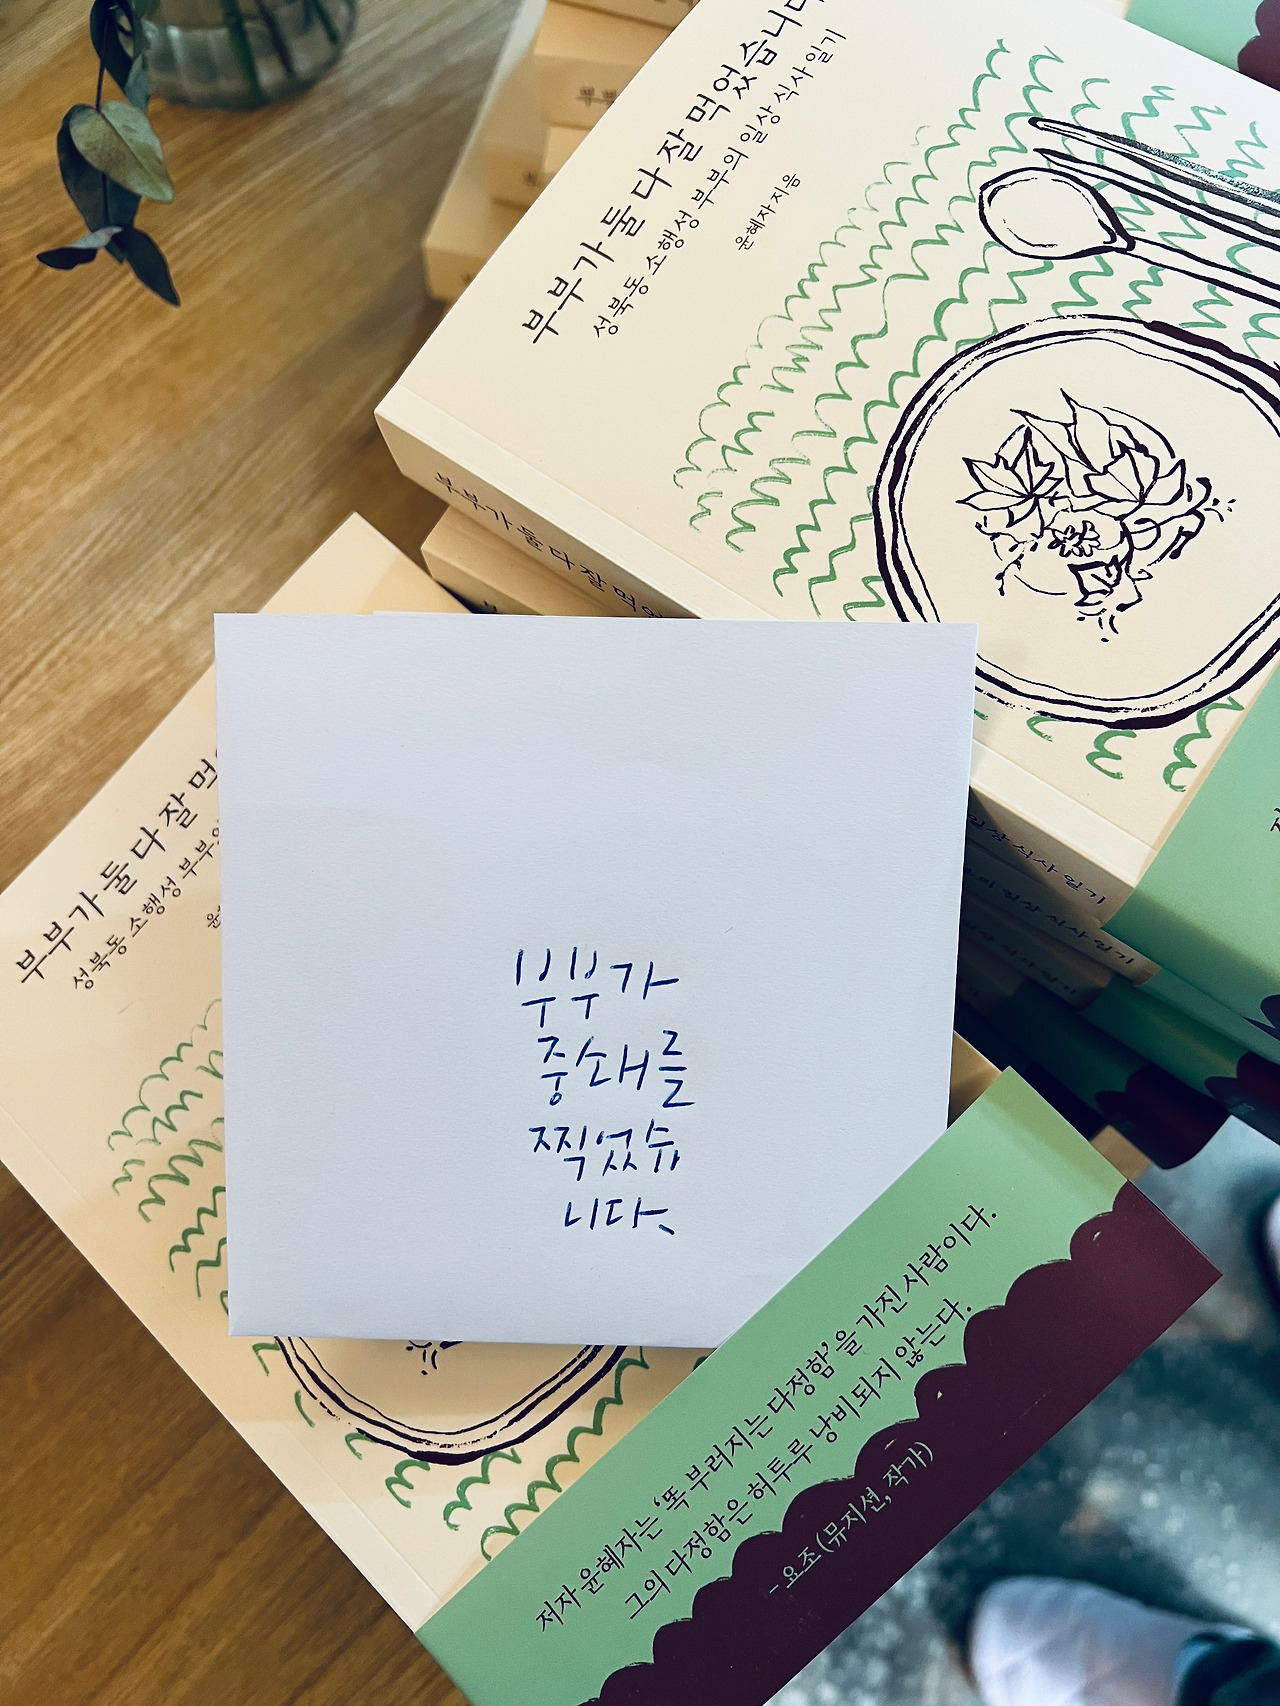 부부가 둘 다 잘 먹었습니다
성북동 소행성 부부의 일상 식사 일기
윤혜자 지음
부부가 둘 다 잘 먹었
일상 식사 일기
일상 식사 일기
부부가 둘 다 잘 먹
성북동 소행성 부부의
윤
부부가
중쇄를
찍었슈
니다.
저자 윤혜자는 ‘똑 부러지는 다정함’을 가진 사람이다.
그의 다정함은 허투루 낭비되지 않는다.
- 요조 (뮤지션, 작가)